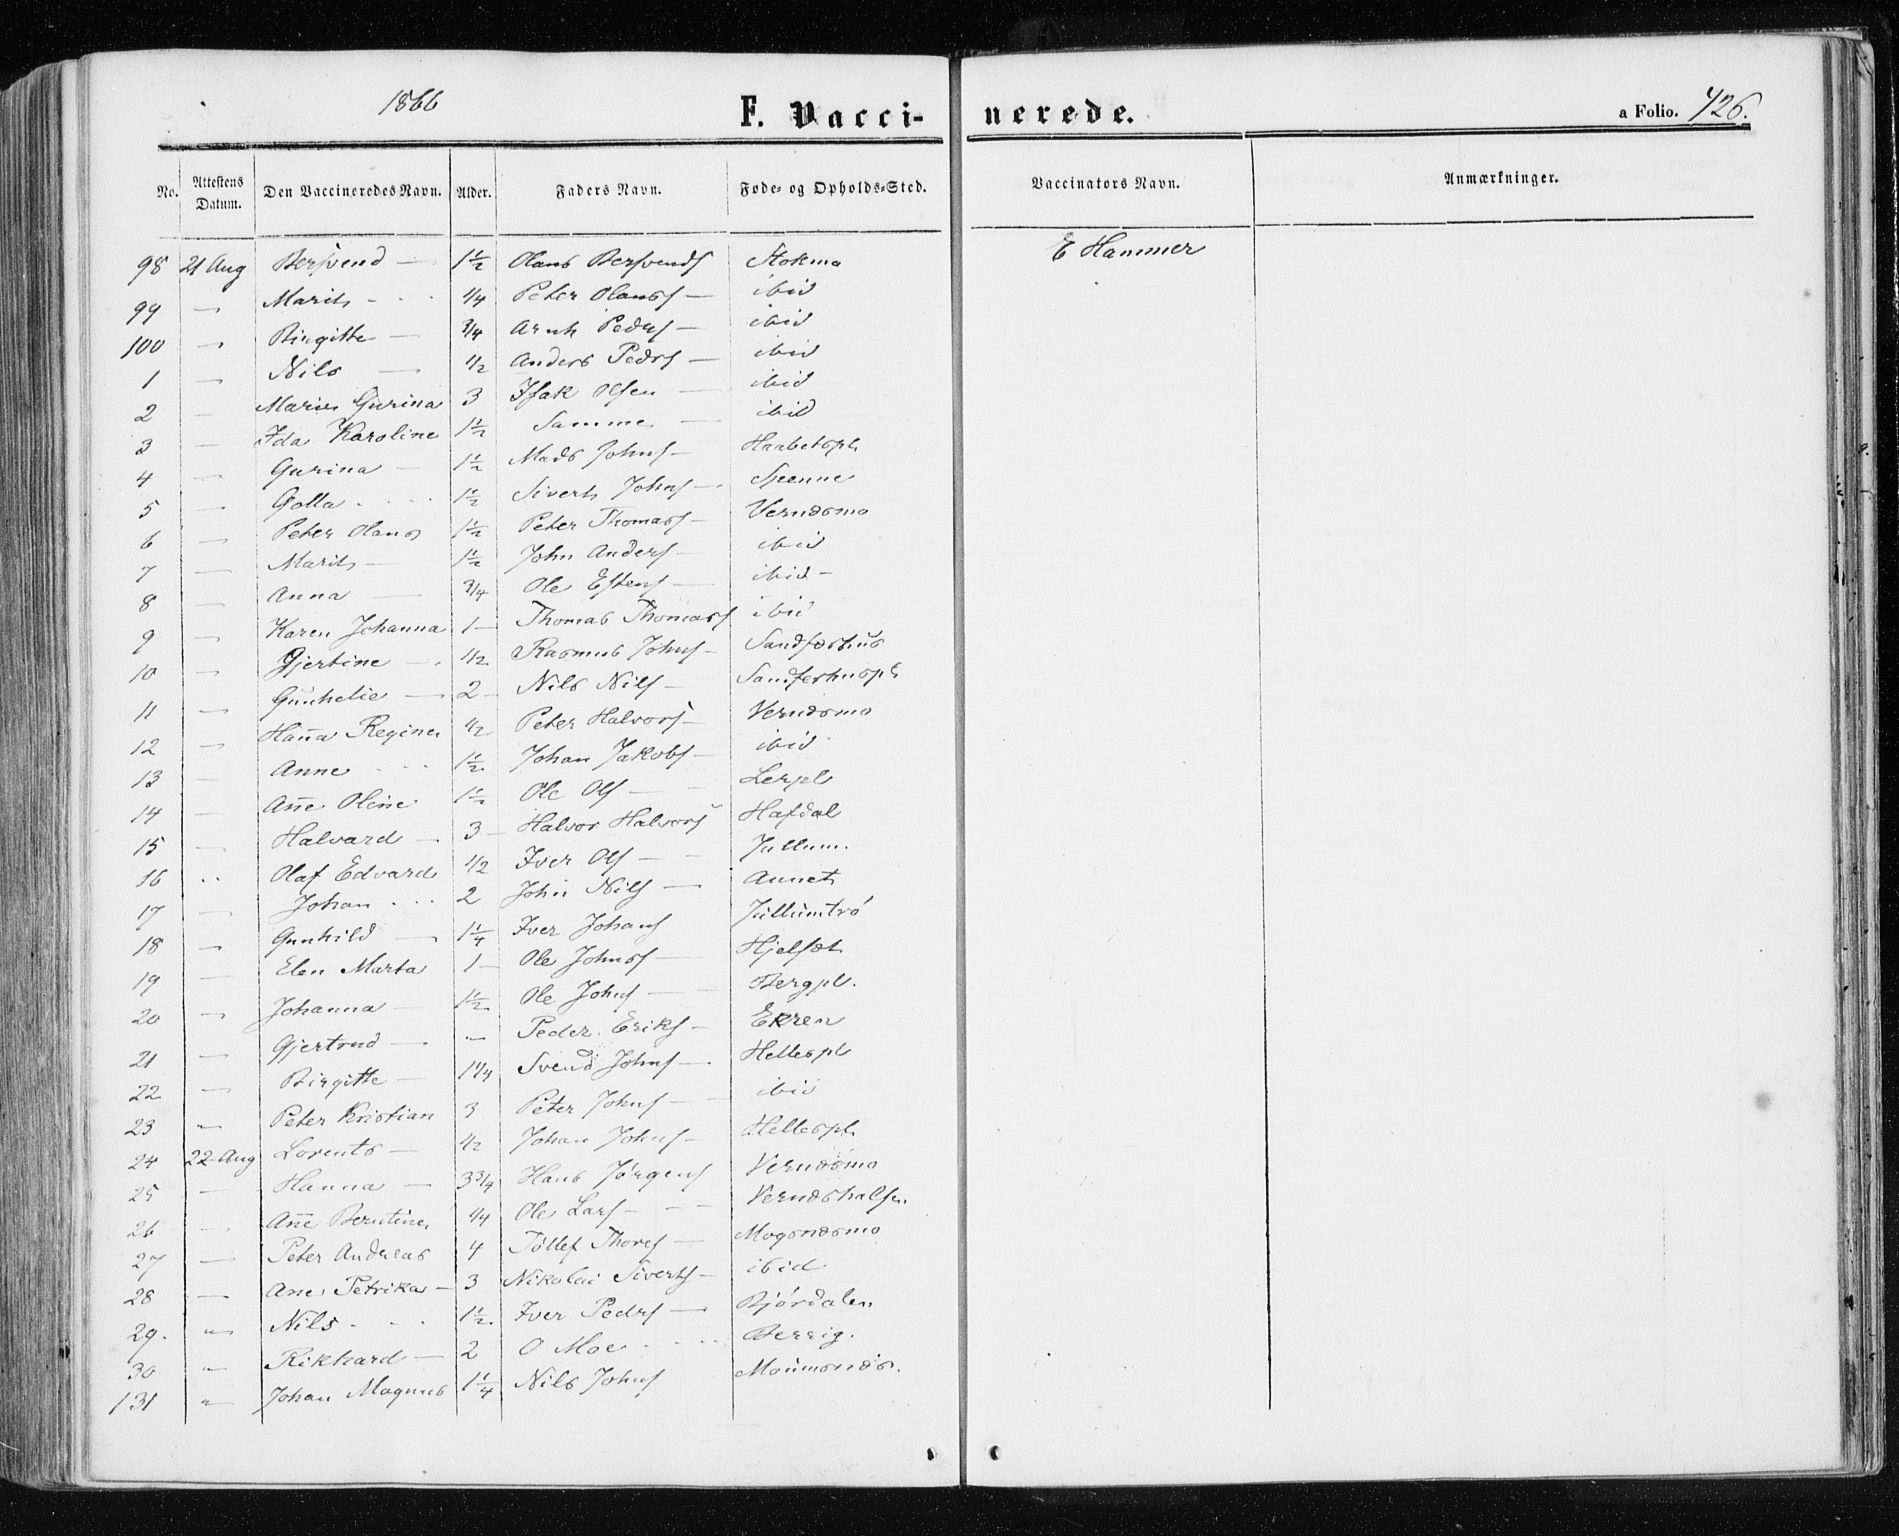 1866
F. Vacci- nerede. a Folio. 426.
No. Attestens Datum. Den Vaccineredes Navn. Alder. Faders Navn. Føde- og Opholds-Sted. Vaccinators Navn. Anmærkninger.
98 21 Aug Bersvend — 1½ Olaus Bersvends Stokmo E Hammer
99 — Marit - - - 1/4 Peter Olauss — ibid
100 — Birgitte — 3/4 Arnt Peders — ibid
1 — Nils — 1/2 Anders Peders — ibid
2 — Marie Gurina 3 Isak Olsen — ibid
3 — Ida Karoline 1½ Samme — ibid
4 — Gurina — 1½ Mads Johns — Haabetspl
5 — Golla - - - 1½ Sivert Johns — Speenne
6 — Peter Olaus 1½ Peter Thomass — Vernæsmo
7 — Marit — 1½ John Anders — ibid
8 — Anna — 3/4 Ole Estens — ibid -
9 — Karen Johanna 1 — Thomas Thomass ibid
10 — Gjertine — 1/2 Rasmus Johns — Sandfærhus
11 — Gunhelie — 2 — Nils Nils — Sandferhuspl
12 — Hanna Regine 1/2 Peter Halvors — Vernæsmo
13 — Anne - - - 1½ Johan Jakobs — ibid
14 — Anne Oline 1½ Ole Ols — Lerpl
15 — Halvard — 3 — Halvor Halvors Hafdal
16 - - Olaf Edvard 1/2 Iver Ols — Jullum.
17 — Johan - - - 2 John Nils — Aunet
18 — Gunhild — 1¼ Iver Johans Jullumtrø
19 — Elen Marta 1 — Ole Johns — Hjelset
20 — Johanna — 1½ Ole Johns — Bergpl.
21 — Gjertrud — " Peder Eriks — Ekren
22 — Birgitte — 1 1/4 Svend Johns — Hellespl
23 " Peter Kristian 3 Peter Johns — ibid
24 22 Aug Lorents — 1/2 Johan Johns — Hellespl
25 — Hanna — 3 3/4 Hans Jørgens Vernæsmo
26 — Anne Berntine 1/4 Ole Lars — Vernæshalsen
27 — Peter Andreas 4 Tollef Thores — Mogsnæsmo
28 — Ane Petrika — 3 Nikolai Siverts — ibid
29. " Nils - - - 1½ Iver Peders — Bjørdalen
30 " Rikhard — 2 O Moe - - - Berrig.
131 " Johan Magnus 1¼ Nils Johns